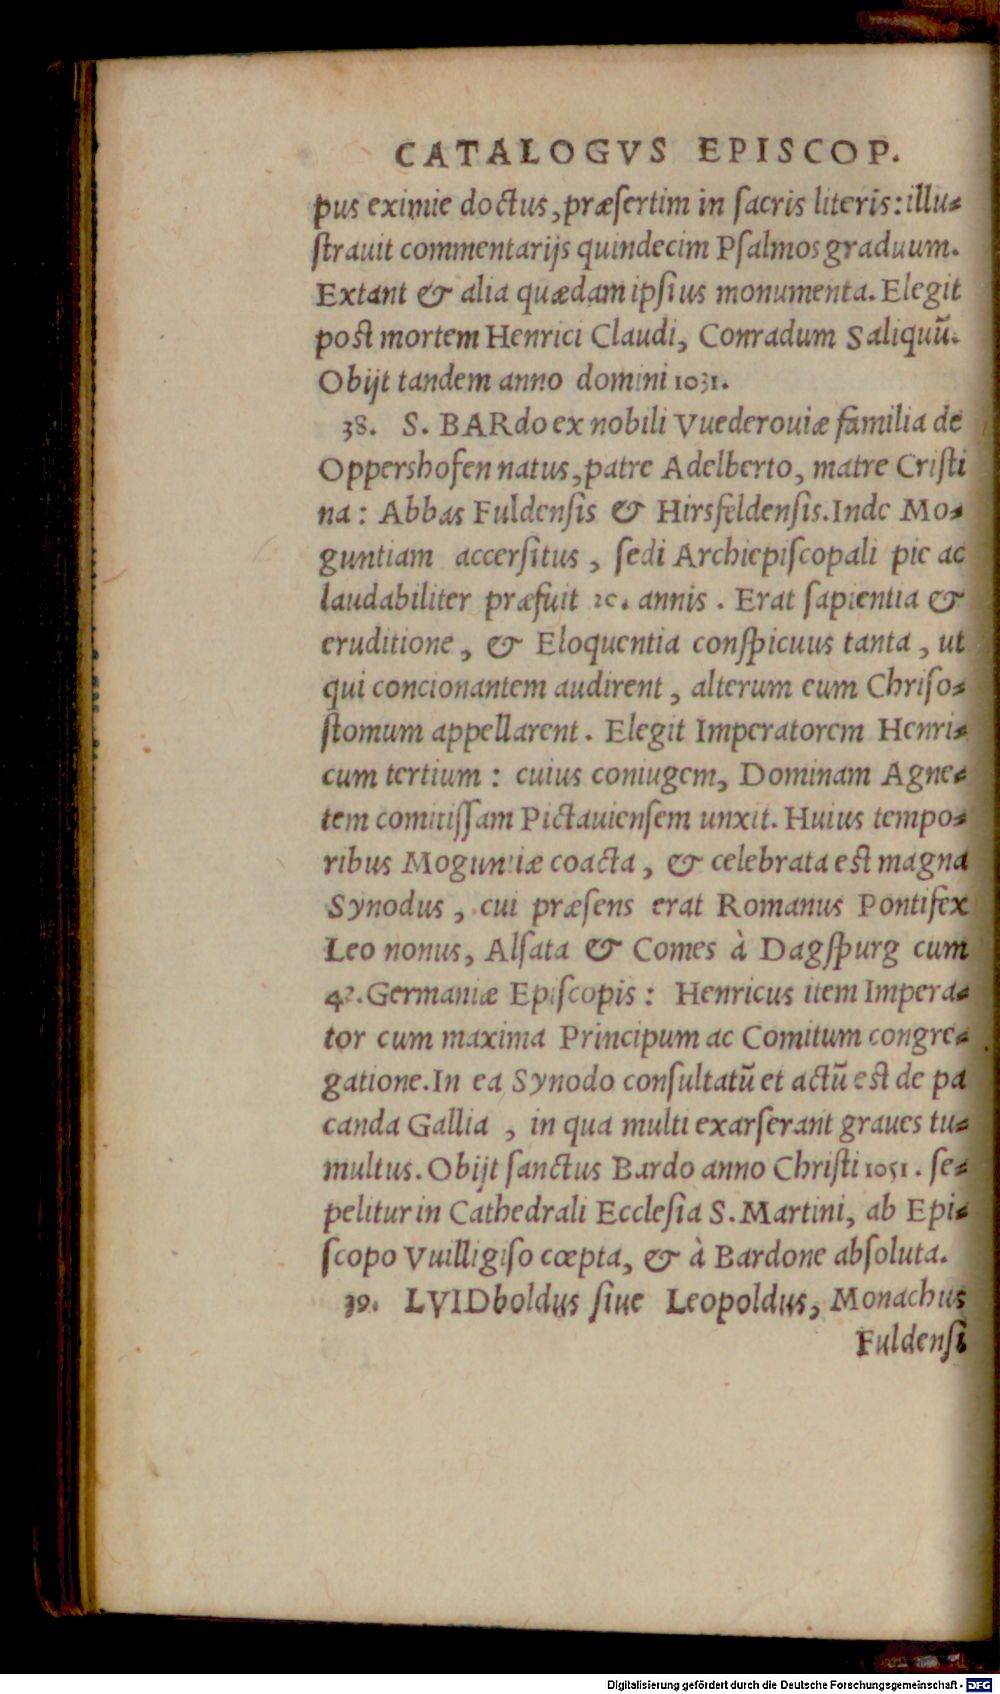 CATALOGVS EPISCOP.
pus eximie doctus, præsertim in sacris literis: illu-
strauit commentarijs quindecim Psalmos graduum.
Extant & alia quædam ipsius monumenta. Elegit
post mortem Henrici Claudi, Conradum Saliquũ.
Obijt tandem anno domini 1031.
38. S. BARdo ex nobili Vuederouiæ familia de
Oppershofen natus, patre Adelberto, matre Cristi
na: Abbas Fuldensis & Hirsfeldensis. Inde Mo-
guntiam accersitus, sedi Archiepiscopali pie ac
laudabiliter præfuit annis. Erat sapientia &
eruditione, & Eloquentia conspicuus tanta, ut
qui concionantem audirent, alterum eum Chriso-
stomum appellarent. Elegit Imperatorem Henri-
cum tertium: cuius coniugem, Dominam Agne-
tem comitissam Pictauiensem unxit. Huius tempo-
ribus Moguntiæ coacta, & celebrata est magna
Synodus, cui præsens erat Romanus Pontifex
Leo nonus, Alsata & Comes à Dagspurg cum
42. Germaniæ Episcopis: Henricus item Impera-
tor cum maxima Principum ac Comitum congre-
gatione. In ea Synodo consultatũ et actũ est de pa
canda Gallia, in qua multi exarserant graues tu-
multus. Obijt sanctus Bardo anno Christi 1051. se-
pelitur in Cathedrali Ecclesia S. Martini, ab Epi-
scopo Vuilligiso cœpta, & à Bardone absoluta.
39. LVIDboldus siue Leopoldus, Monachus
Fuldensi
Digitalisierung gefördert durch die Deutsche Forschungsgemeinschaft - DFG